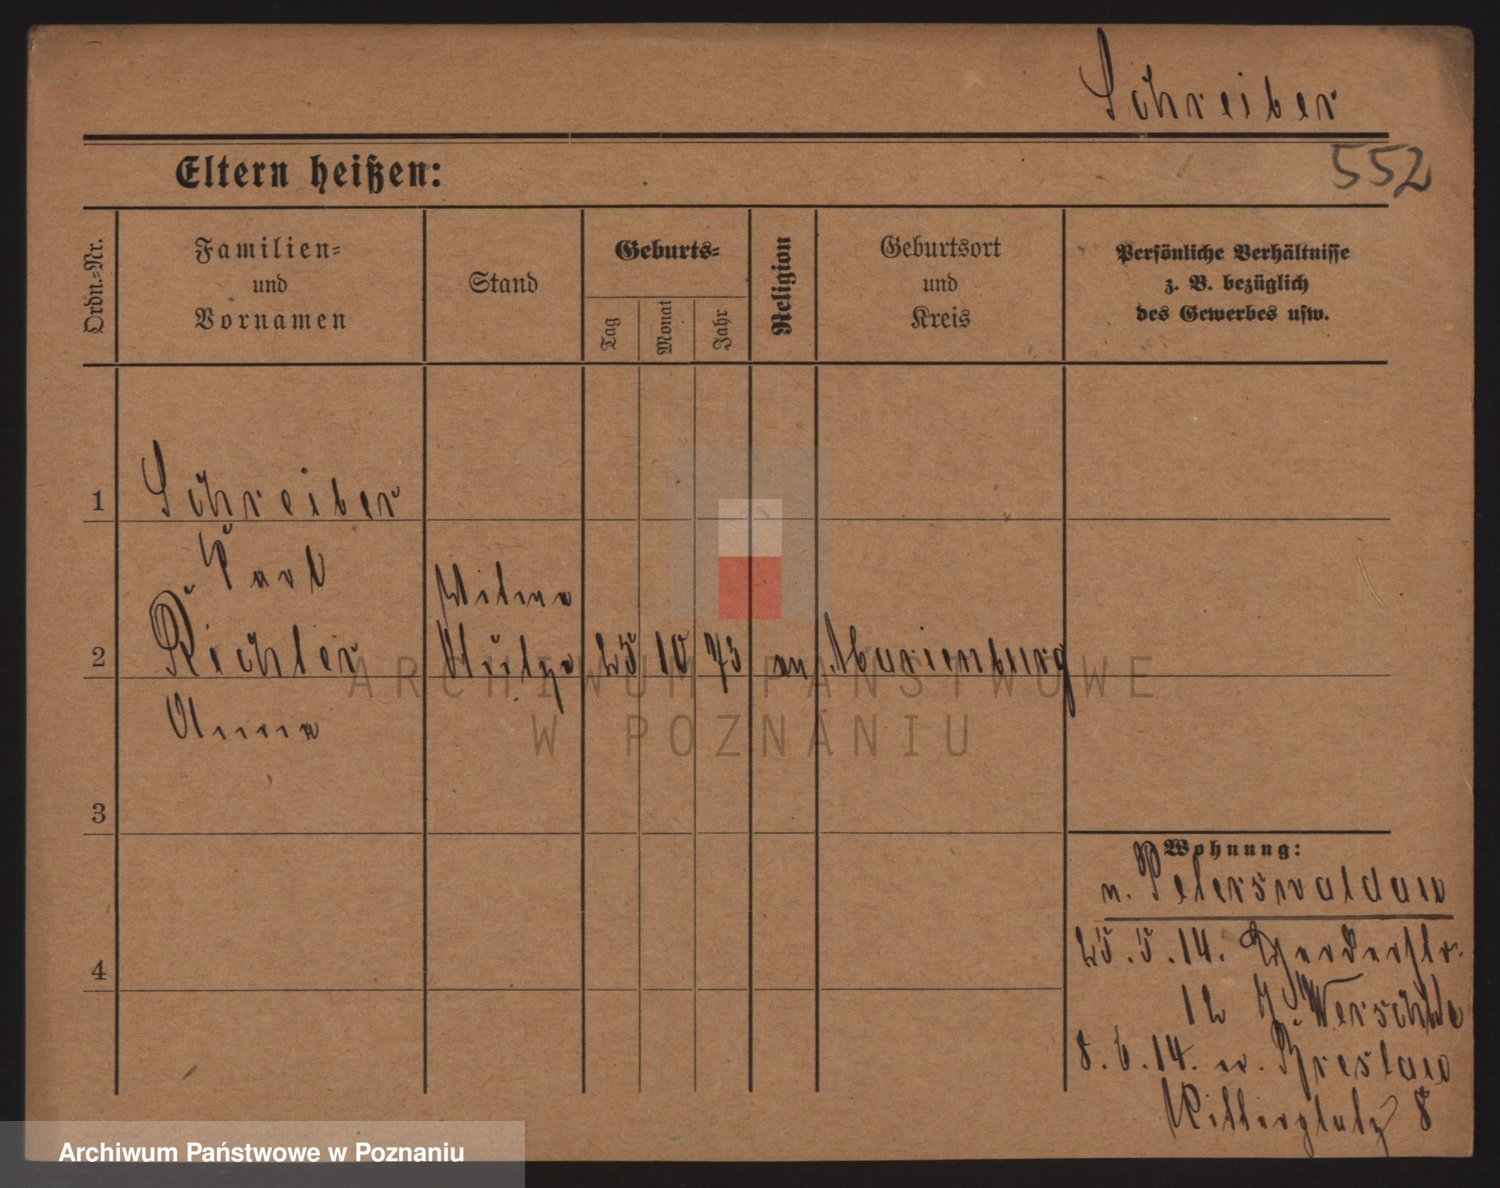 Schreiber
552
Eltern heißen:
Ordn.-Nr.
Familien-
und
Vornamen
Stand
Geburts-
Tag
Monat
Jahr
Religion
Geburtsort
und
Kreis
Persönliche Verhältnisse
z. B. bezüglich
des Gewerbes usw.
1
Schreiber
Paul
2
Richter
25 10 73
Marienburg
Anna
3
4
Wohnung:
n. Peterswaldau
25. 5. 14.
12
8. 6. 14. n. Breslau
Ritterplatz 8
ARCHIWUM PAŃSTWOWE
W POZNANIU
Archiwum Państwowe w Poznaniu